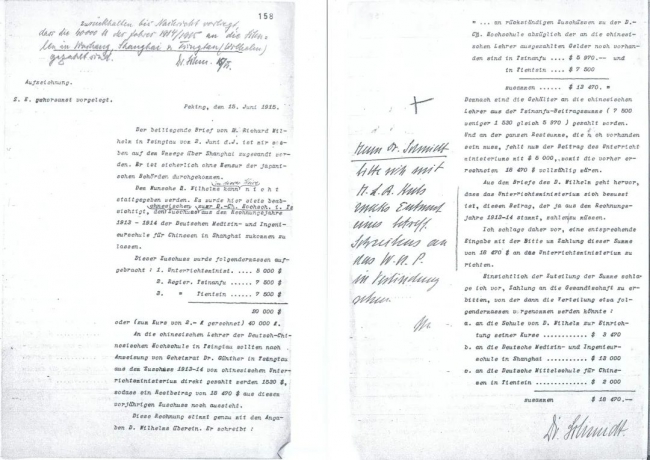 158
zurückhalten bis Nachricht vorliegt,
dass die 40000 M der Jahre 1914/1915 an die Schu-
len in Wuchang, Shanghai & Tsingtau (Wilhelm)
gezahlt sind.
Dr. Schm.
Aufzeichnung.
S. E. gehorsamst vorgelegt.
Peking, den 15. Juni 1915.
Der beiliegende Brief von D. Richard Wil-
helm in Tsingtau vom 2. Juni d.J. ist mir so-
eben auf dem Umwege über Shanghai zugesandt wor-
den. Er ist sicherlich ohne Zensur der japani-
schen Behörden durchgekommen.
in dieser Form
Dem Wunsche D. Wilhelms kann nicht
stattgegeben werden. Es wurde hier stets beab-
chinesischen zur D.-Ch. Hochsch. i. Ts
sichtigt, den Zuschuss aus dem Rechnungsjahre
1913 - 1914 der Deutschen Medizin- und Ingeni-
eurschule für Chinesen in Shanghai zukommen zu
lassen.
Dieser Zuschuss wurde folgendermassen auf-
gebracht : 1. Unterrichtsminist. .... 5 000 $
2. Regier. Tsinanfu ...... 7 500 $
3. " Tientsin ...... 7 500 $
20 000 $
oder (zum Kurs von 2.- M gerechnet) 40 000 M.
An die chinesischen Lehrer der Deutsch-Chi-
nesischen Hochschule in Tsingtau sollten nach
Anweisung von Geheimrat Dr. Günther in Tsingtau
aus dem Zuschuss 1913-14 vom chinesischen Unter-
richtsministerium direkt gezahlt werden 1530 $,
sodass ein Restbetrag von 18 470 $ aus diesem
vorjährigen Zuschuss noch aussteht.
Diese Rechnung stimmt genau mit den Anga-
ben D. Wilhelms überein. Er schreibt :
" ... an rückständigen Zuschüssen zu der D.-
Ch. Hochschule abzüglich der an die chinesi-
schen Lehrer ausgezahlten Gelder noch vorhan-
den sind in Tsinanfu .... $ 5 970.-- und
in Tientsin .... $ 7 500
zusammen ...... $ 13 470. "
Danach sind die Gehälter an die chinesischen
Lehrer aus der Tsinanfu-Beitragssumme ( 7 500
weniger 1 530 gleich 5 970 ) gezahlt worden.
Und an der ganzen Restsumme, die noch vorhanden
sein muss, fehlt nur der Betrag des Unterricht
ministeriums mit $ 5 000, somit die vorher er-
rechneten 18 470 $ vollzählig wären.
Aus dem Briefe des D. Wilhelm geht hervor,
dass das Unterrichtsministerium sich bewusst
ist, diesen Betrag, der ja aus dem Rechnungs-
jahre 1913-14 stammt, zahlen zu müssen.
Ich schlage daher vor, eine entsprechende
Eingabe mit der Bitte um Zahlung dieser Summe
von 18 470 $ an das Unterrichtsministerium zu
richten.
Hinsichtlich der Zuteilung der Summe schla-
ge ich vor, Zahlung an die Gesandtschaft zu er-
bitten, von der dann die Verteilung etwa fol-
gendermassen vorgenommen werden könnte :
a. an die Schule von D. Wilhelm zur Einrich-
tung seiner Kurse ............ $ 3 470
b. an die Deutsche Medizin- und Ingenieur-
schule in Shanghai ........... $ 13 000
c. an die Deutsche Mittelschule für Chine-
sen in Tientsin .............. $ 2 000
zusammen $ 18 470.--
Dr. Schmidt.
Herrn Dr. Schmidt
bitte sich mit
wegen Entwurf
eines
Schreibens an
das
in Verbindung
setzen.